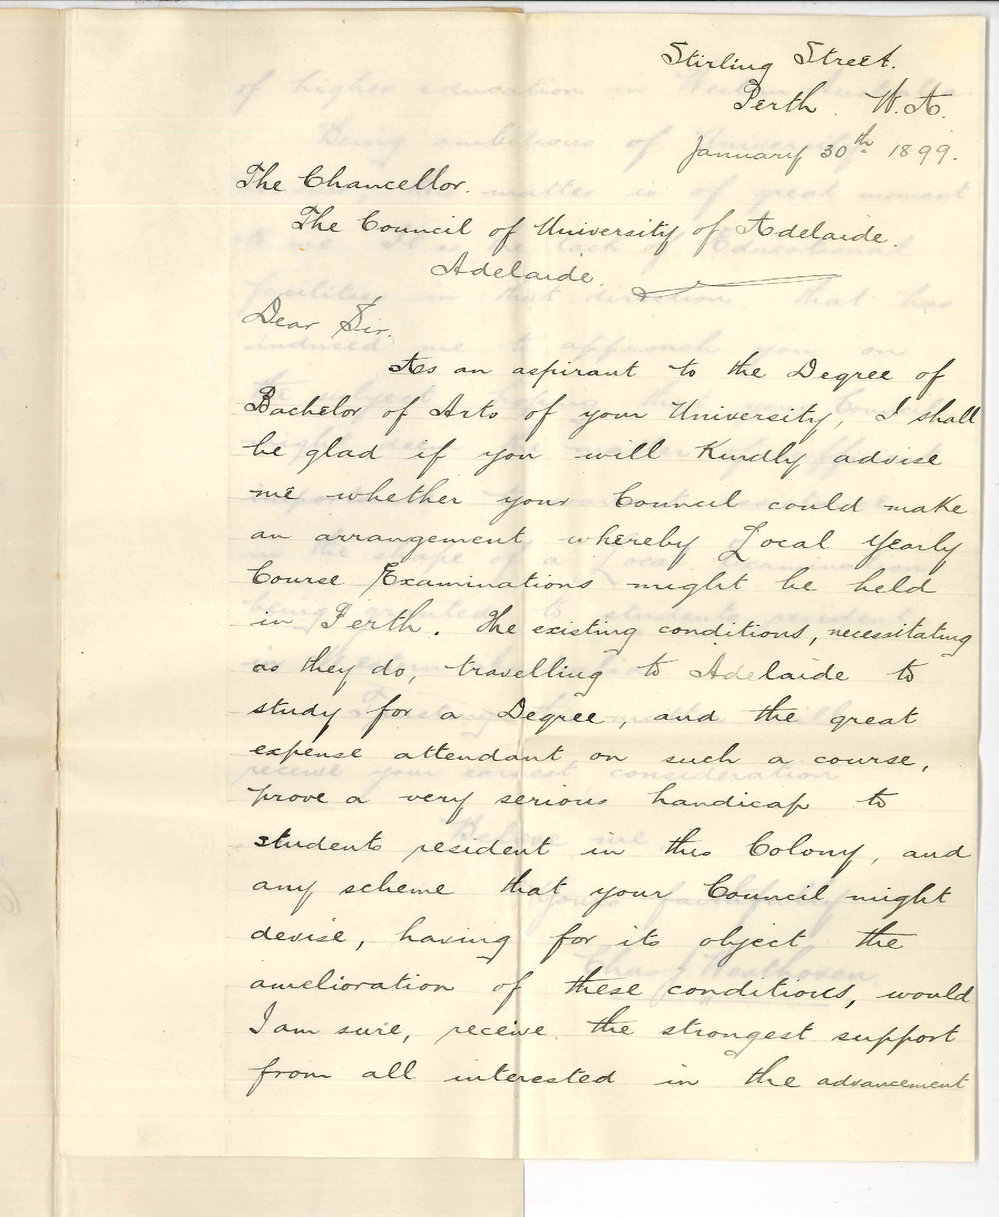 Stirling Street.
Perth. W.A.
January 30th 1899.
The Chancellor.
The Council of University of Adelaide.
Adelaide.
Dear Sir.
As an aspirant to the Degree of
Bachelor of Arts of your University, I shall
be glad if you will kindly advise
me whether your Council could make
an arrangement whereby Local Yearly
Course Examinations might be held
in Perth. The existing conditions, necessitating
as they do, travelling to Adelaide to
study for a Degree, and the great
expense attendant on such a course,
prove a very serious handicap to
students resident in this Colony, and
any scheme that your Council might
devise, having for its object the
amelioration of these conditions, would
I am sure, receive the strongest support
from all interested in the advancement